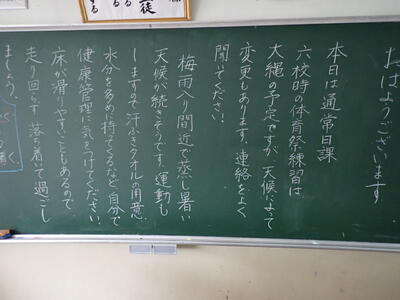 生徒
おはようございます。
本日は通常日課
六校時の体育祭練習は
大縄の予定ですが、天候によって
変更もあります。連絡をよく
聞いてください！
梅雨入り間近で蒸し暑い
天候が続きそうです。運動も
しますので汗ふきタオルの用意、
水分を多めに持ってくるなど、自分で
健康管理に気をつけてください。
床が滑りやすいこともあるので
走り回らず、落ち着て過ごし
ましょう。